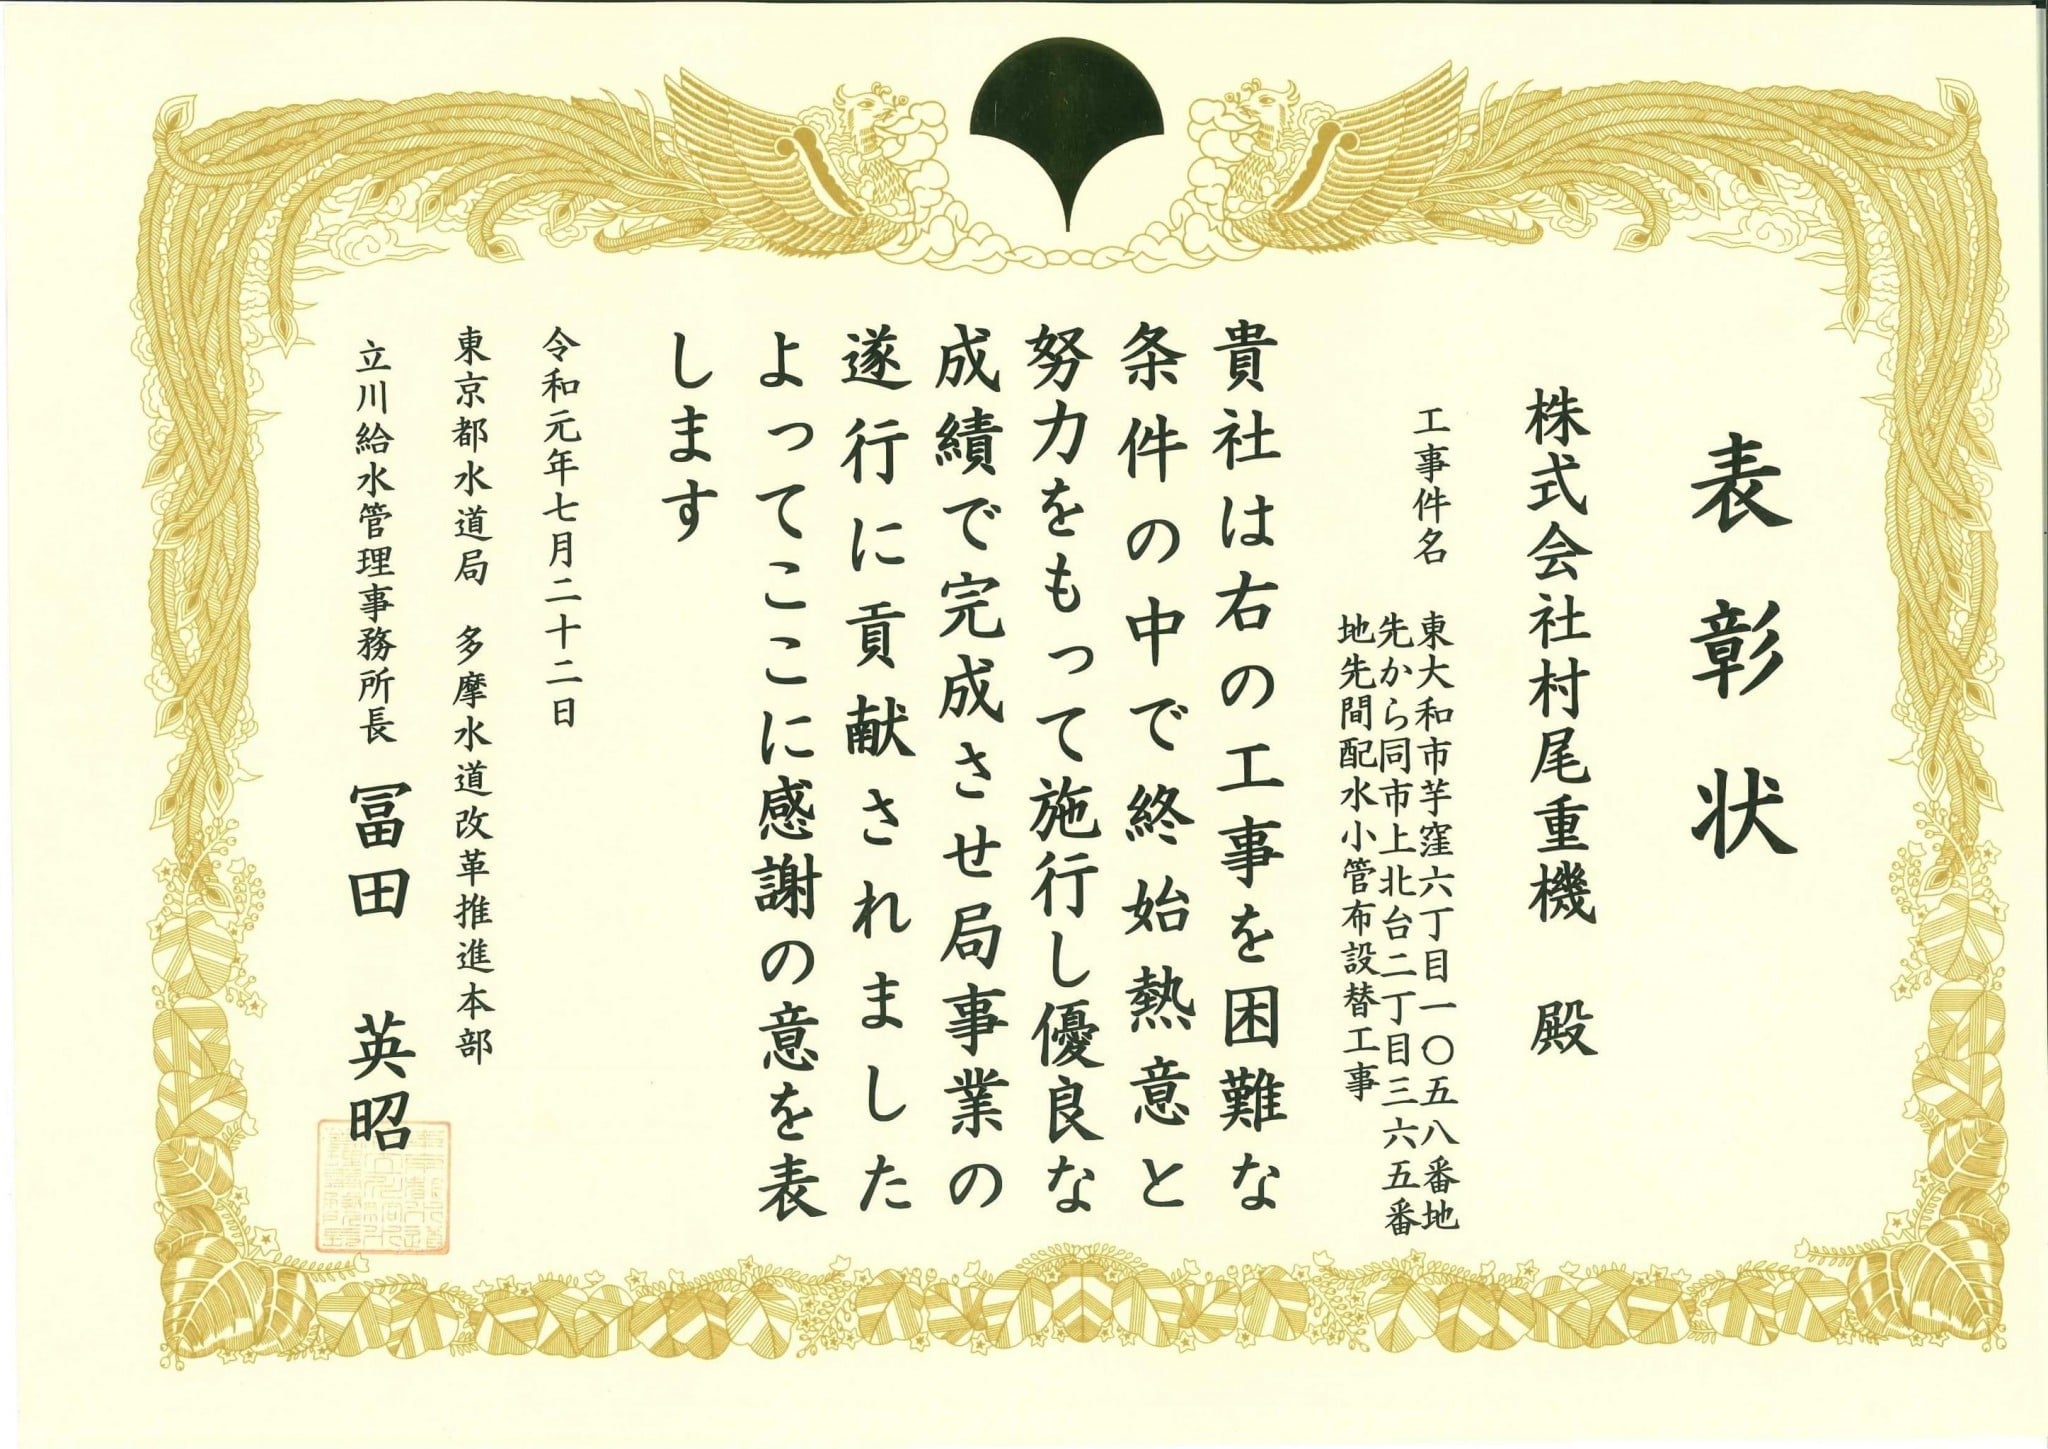 表彰状
株式会社村尾重機 殿
工事件名 東大和市芋窪六丁目一〇五八番地
先から同市上北台二丁目三六五番
地先間配水小管布設替工事
貴社は右の工事を困難な
条件の中で終始熱意と
努力をもって施行し優良な
成績で完成させ局事業の
遂行に貢献されました
よってここに感謝の意を表
します
令和元年七月二十二日
東京都水道局 多摩水道改革推進本部
立川給水管理事務所長 冨田 英昭